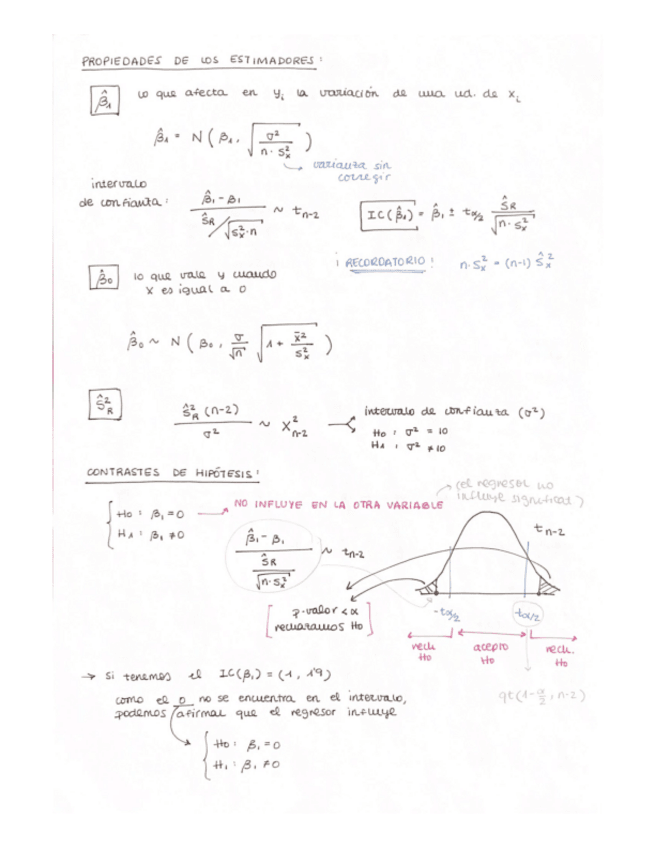 PROPIEDADES DE LOS ESTIMADORES:
β̂₁ lo que afecta en yᵢ la variación de una ud. de xᵢ
β̂₁ = N ( β₁, √(σ² / n · Sₓ²) )
varianza sin
corregir
intervalo
de confianza: (β̂₁ - β₁) / (ŜR / √(Sₓ² · n)) ~ tn-2
IC(β̂₁) = β̂₁ ± tα/2 ŜR / √(n · Sₓ²)
¡ RECORDATORIO ! n · Sₓ² = (n-1) Ŝₓ²
β̂₀ lo que vale y cuando
x es igual a 0
β̂₀ ~ N ( β₀, σ/√n √(1 + x̄²/Sₓ²) )
Ŝ²R
Ŝ²R (n-2) / σ² ~ X²n-2
intervalo de confianza (σ²)
H₀ : σ² = 10
H₁ : σ² ≠ 10
CONTRASTES DE HIPÓTESIS:
(el regresor no
influye significat.)
H₀ : β₁ = 0 → NO INFLUYE EN LA OTRA VARIABLE
H₁ : β₁ ≠ 0
(β̂₁ - β₁) / (ŜR / √(n · Sₓ²)) ~ tn-2
tn-2
p-valor < α
rechazamos H₀
-tα/2 tα/2
rech. acepto rech.
H₀ H₀ H₀
qt(1-α/2, n-2)
→ Si tenemos el IC(β₁) = (1, 1'9)
como el 0 no se encuentra en el intervalo,
podemos afirmar que el regresor influye
H₀ : β₁ = 0
H₁ : β₁ ≠ 0